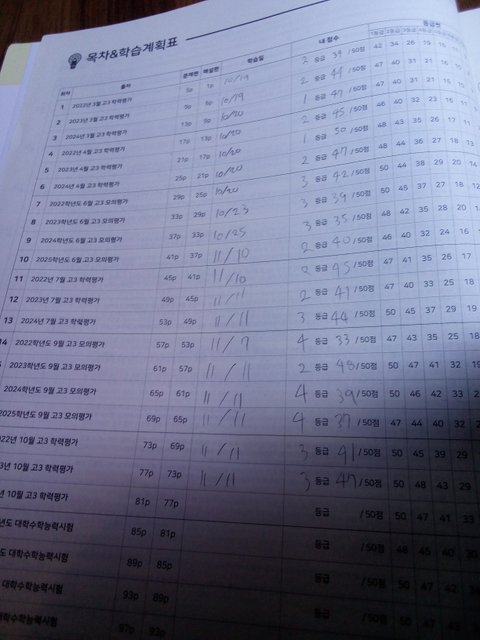 목차&학습계획표
회차 출처 문제편 해설편 학습일 내 점수 등급컷
1등급 2등급 3등급 4등급
1 2022년 3월 고3 학력평가 5p 1p 10/19 2 등급 39 /50점 42 34 26 19 15 11
2 2023년 3월 고3 학력평가 9p 5p 10/19 2 등급 44 /50점 47 40 31 21 16
3 2024년 3월 고3 학력평가 13p 9p 10/20 1 등급 47 /50점 47 40 31 21 16
4 2022년 4월 고3 학력평가 17p 13p 10/20 2 등급 45 /50점 46 40 32 23 16 11
5 2023년 4월 고3 학력평가 21p 17p 10/20 1 등급 50 /50점 48 43 35 26 17 11
6 2024년 4월 고3 학력평가 25p 21p 10/20 2 등급 47 /50점 48 44 36 27 18 13
7 2022학년도 6월 고3 모의평가 29p 25p 10/20 3 등급 42 /50점 50 44 38 29 20 14
8 2023학년도 6월 고3 모의평가 33p 29p 10/23 3 등급 39 /50점 50 45 37 27 18 12
9 2024학년도 6월 고3 모의평가 37p 33p 10/25 3 등급 35 /50점 48 42 35 28 20
10 2025학년도 6월 고3 모의평가 41p 37p 11/10 2 등급 40 /50점 46 40 32 24 16
11 2022년 7월 고3 학력평가 45p 41p 11/10 2 등급 45 /50점 47 41 35 26 17
12 2023년 7월 고3 학력평가 49p 45p 11/11 2 등급 41 /50점 47 40 33 25 18
13 2024년 7월 고3 학력평가 53p 49p 11/11 3 등급 44 /50점 50 45 37 29 19
14 2022학년도 9월 고3 모의평가 57p 53p 11/7 4 등급 33 /50점 47 43 35 25 18
2023학년도 9월 고3 모의평가 61p 57p 11/11 2 등급 48 /50점 50 47 41 32 19
2024학년도 9월 고3 모의평가 65p 61p 11/11 4 등급 39 /50점 50 46 42 33
2025학년도 9월 고3 모의평가 69p 65p 11/11 4 등급 37 /50점 47 44 40 32
2022년 10월 고3 학력평가 73p 69p 11/11 3 등급 41 /50점 50 45 39 29
10월 고3 학력평가 77p 73p 11/11 3 등급 47 /50점 50 48 43 29
10월 고3 학력평가 81p 77p 등급 /50점 50 47 41 33
대학수학능력시험 85p 81p 등급 /50점 48 45 40 30
대학수학능력시험 89p 85p 등급 /50점 50 47 42
대학수학능력시험 93p 89p 등급 /50점 50 47
대학수학능력시험 97p 93p 등급 /50점 50 47